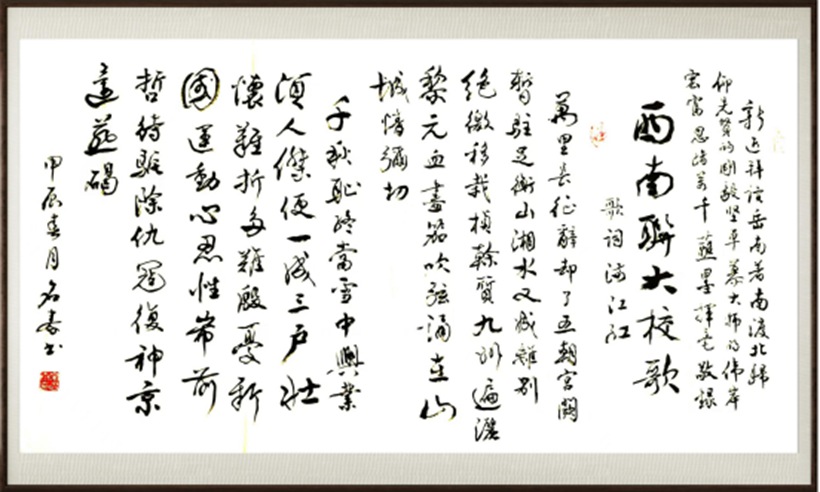 新近拜读岳南著南渡北歸
仰先贤的刚毅坚卓慕大师的伟岸
宏富思绪万千蘸墨揮毫敬録
西南聯大校歌
歌词满江红
萬里長征辭却了五朝宮闕
暫駐足衡山湘水又成離別
絕徼移栽楨榦質九州遍灑
黎元血盡笳吹弦誦在山
城情彌切
千秋恥終當雪中興業
須人傑便一成三戶壯
懷難折多難殷憂新
國運動心忍性希前
哲待驅除仇寇復神京
還燕碣
甲辰春月名春书